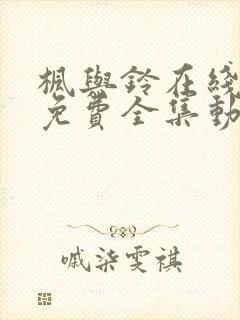 楓與鈴在綫
免費全集動
戚柒雯祺